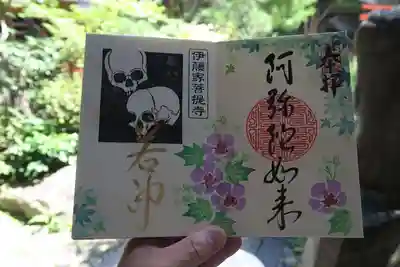 奉拝
阿弥陀如来
伊藤家菩提寺
若冲